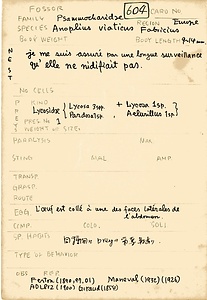 FOSSOR
604 CARD NO.
FAMILY Psammocharidae REGION Europe
SPECIES Anoplius viaticus Fabricius
BODY WEIGHT BODY LENGTH 9-14 mm
NEST
je me suis assuré par une longue surveillance
qu'elle ne nidifiait pas.
NO. CELLS
KIND
Lycosidae Lycosa 3spp. + Lycosa 1sp.
Pardosa 1sp. 1sp.
PREY NO.
WEIGHT or SIZE.
PARALYSIS
STING MAL. AMP.
TRANSP.
GRASP.
ROUTE
EGG L'œuf est collé à une des faces latérales de
l'abdomen.
COMP. COLO. SOLI.
SP. HABITS
TYPE OF BEHAVIOR
OBS. REP.
Ferton (1890, 97, 01) Maneval (1932) (1926)
ADLERZ (1900) Giraud (1854)